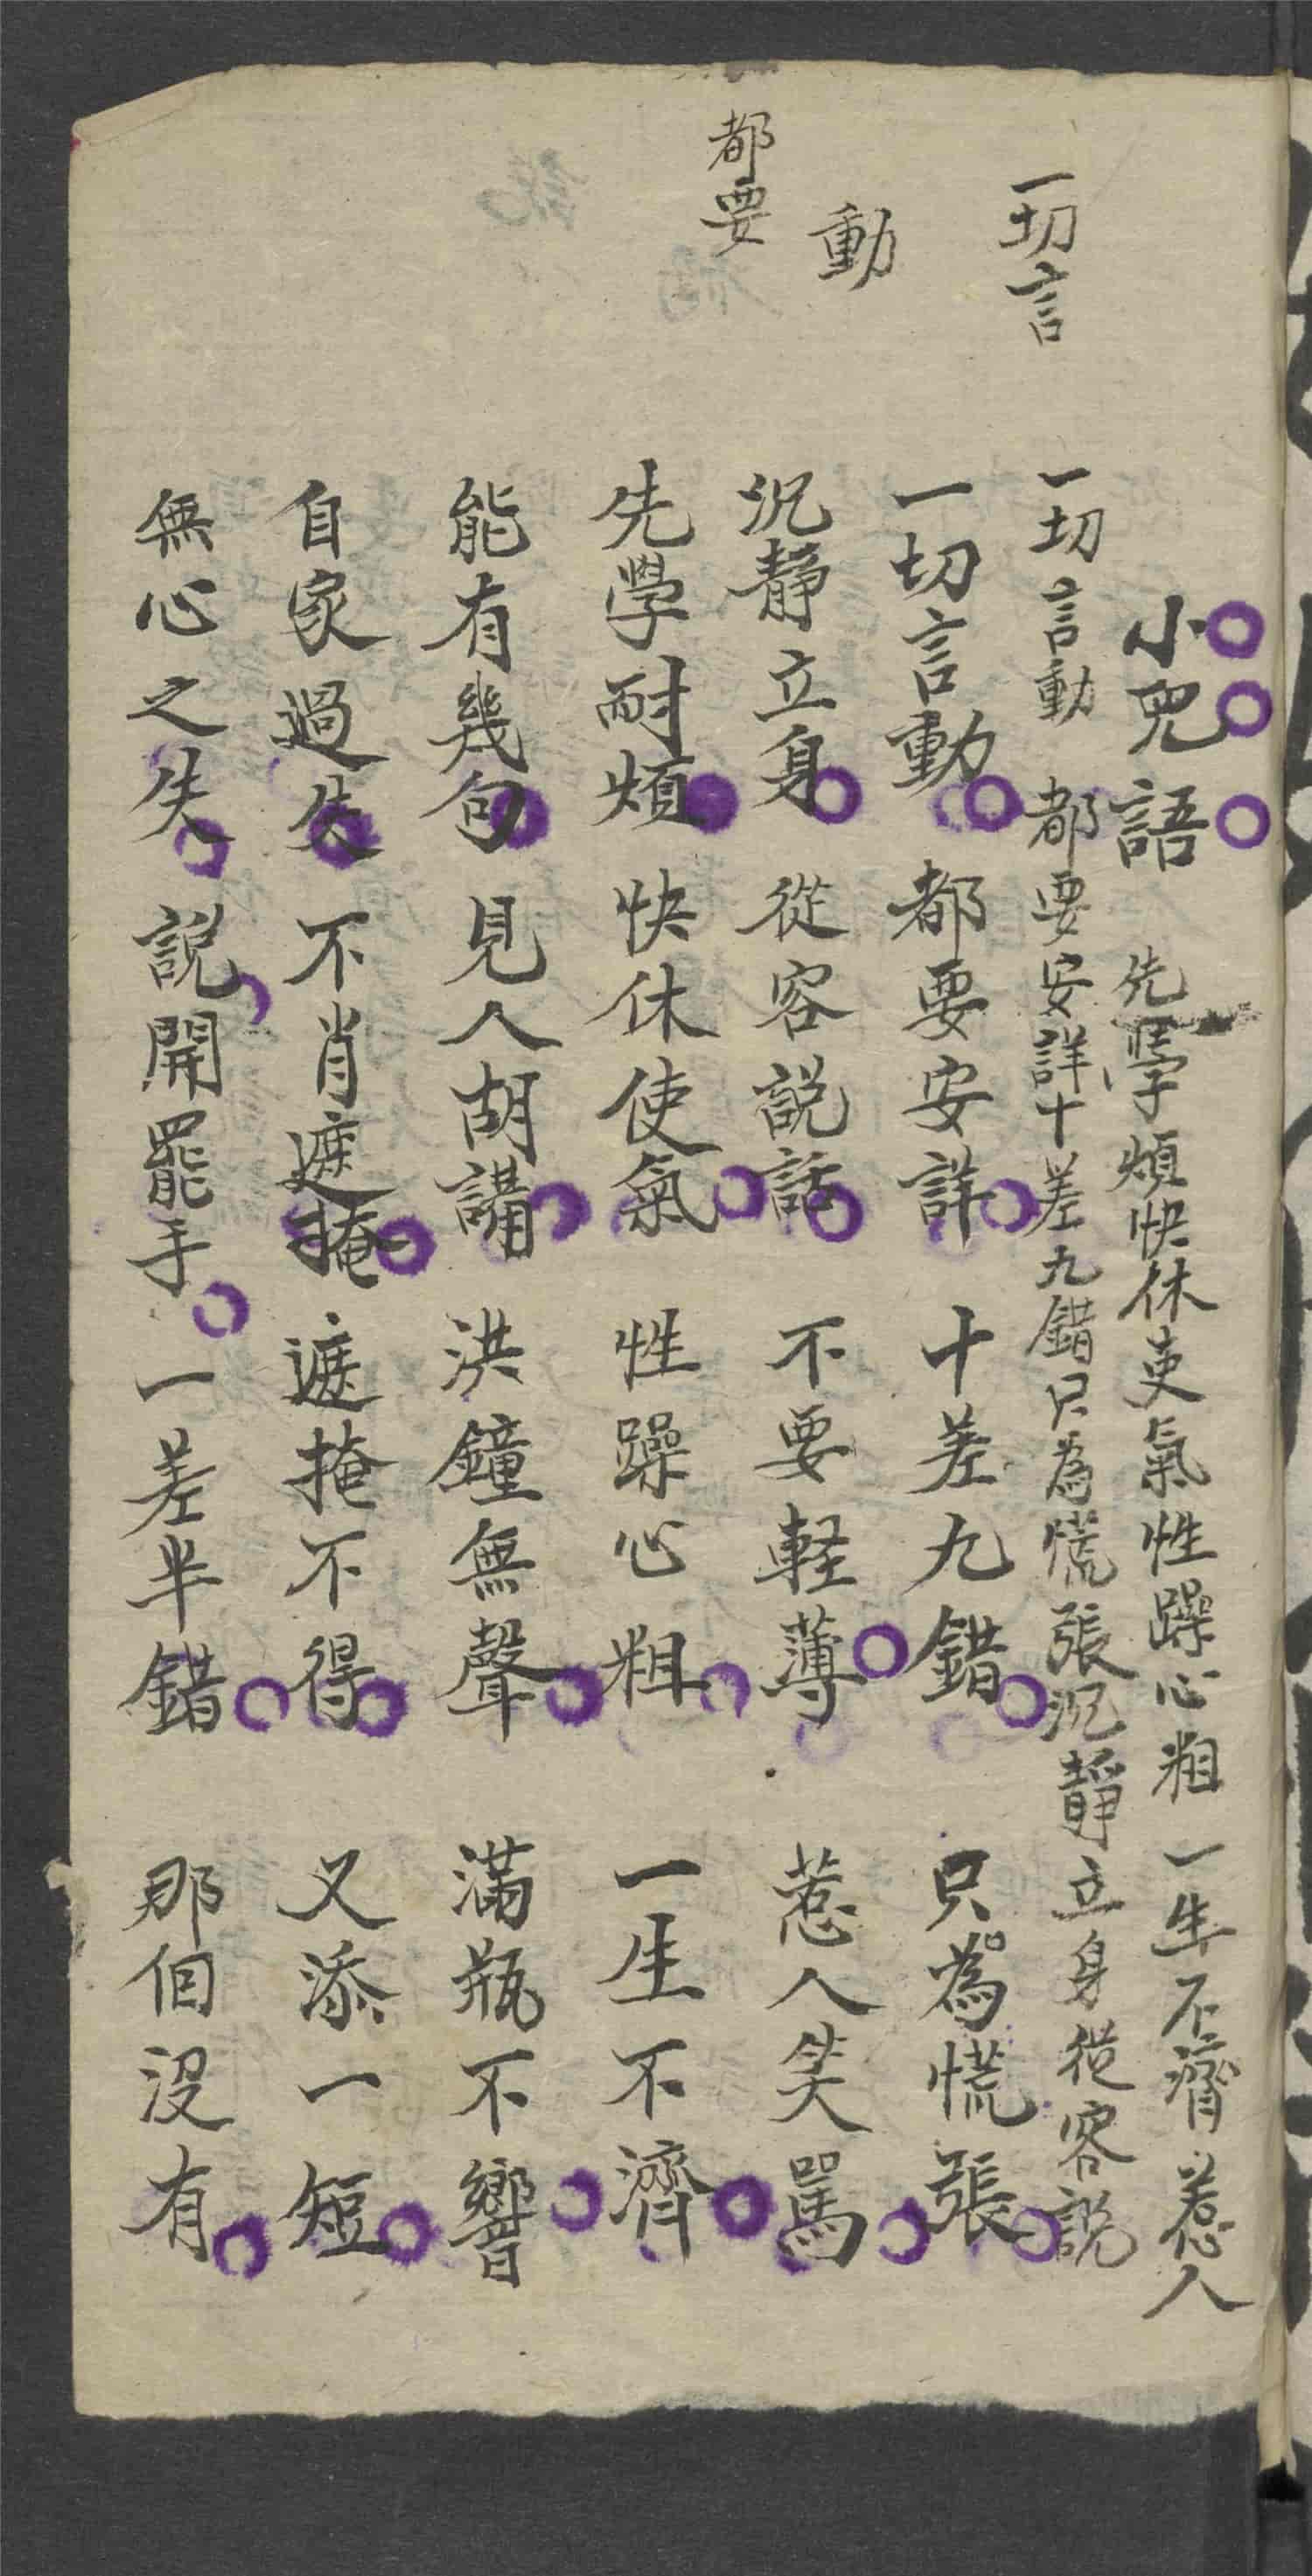 一切言
動
都要
小兒語
先學煩快休吏氣性躁心粗一生不濟惹人
一切言動都要安詳十差九錯只為慌張沉靜立身從容說
一切言動都要安詳十差九錯只為慌張
沉靜立身從容說話不要軽薄惹人笑罵
先學耐煩快休使氣性躁心粗一生不濟
能有幾句見人胡講洪鐘無聲滿瓶不響
自家過失不肖遮掩遮掩不得又添一短
無心之失說開罷手一差半錯那個沒有